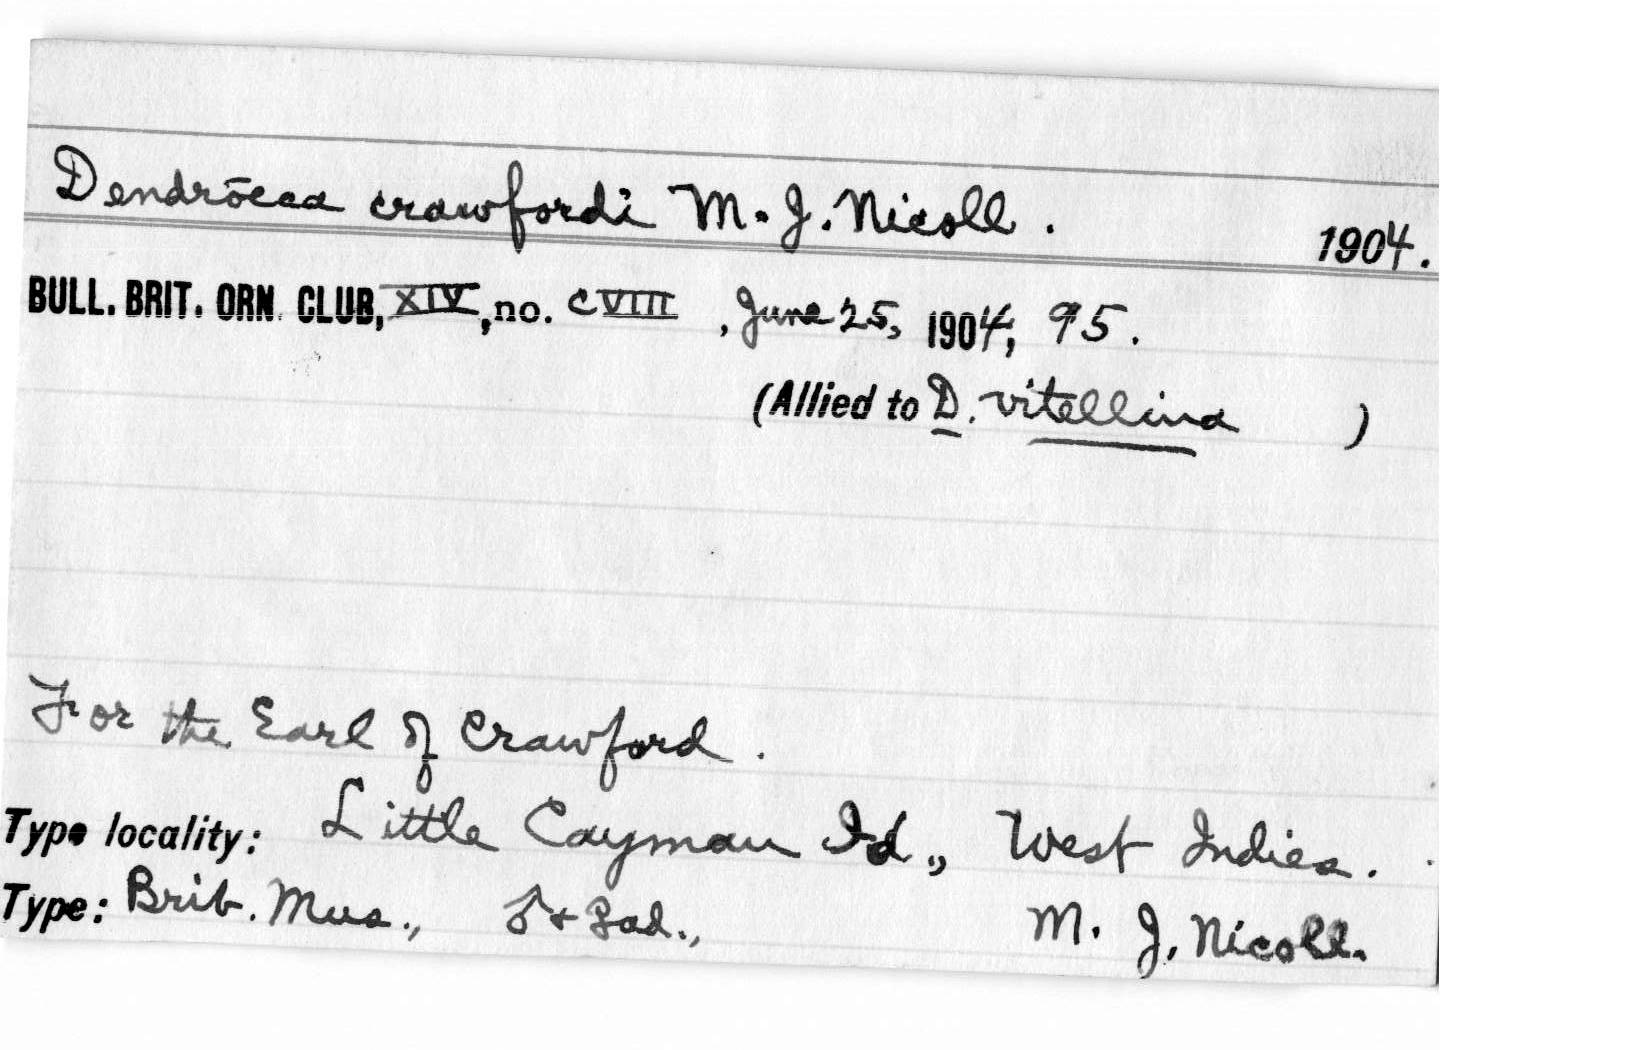 Dendrōeca crawfordi M. J. Nicoll. 1904.
BULL. BRIT. ORN. CLUB, XIV, no. CVIII, June 25, 1904, 95.
(Allied to D. vitellina )
For the Earl of Crawford.
Type locality: Little Cayman Id., West Indies.
Type: Brit. Mus., ♂ + ♀ ad., M. J. Nicoll.